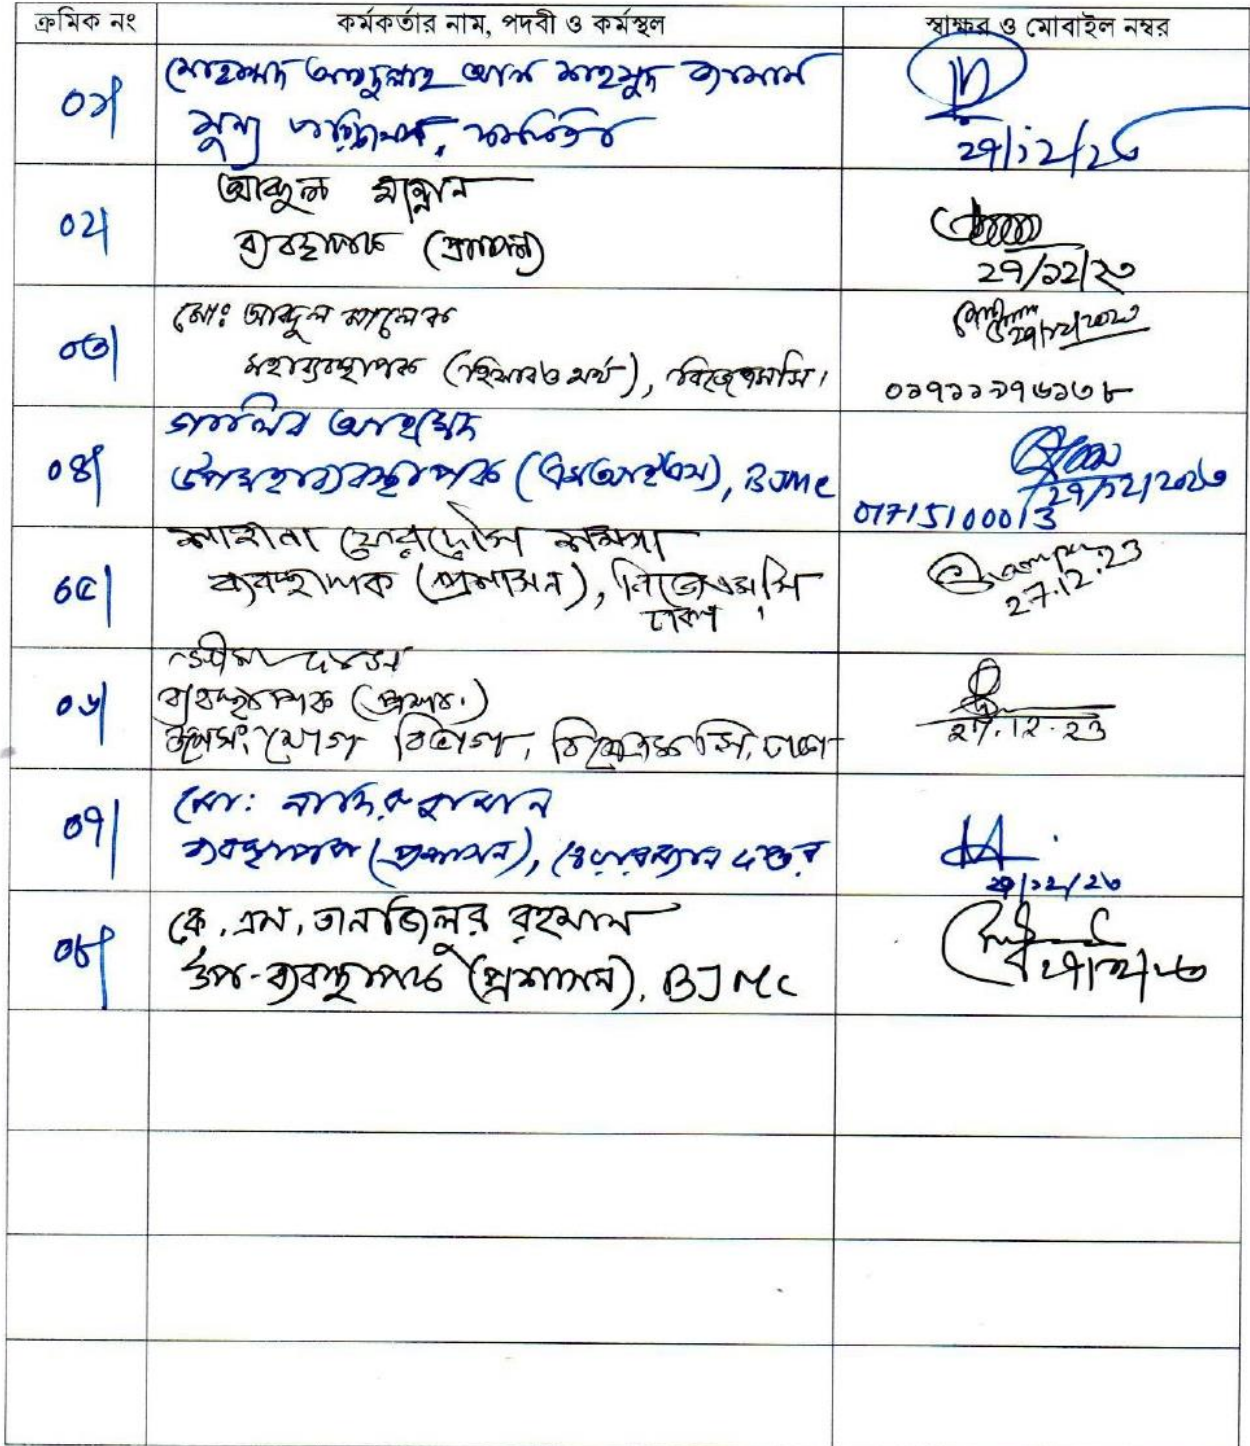 ক্রমিক নং কর্মকর্তার নাম, পদবী ও কর্মস্থল স্বাক্ষর ও মোবাইল নম্বর
০১। মোহাম্মদ আবদুল্লাহ আল মাহমুদ জামান
মুখ্য পরিচালক,
২৭/১২/২৩
আব্দুল মান্নান
০২। ব্যবস্থাপক (প্রশাসন)
২৭/১২/২৩
মোঃ আব্দুল মালেক
০৩। মহাব্যবস্থাপক (হিসাব ও অর্থ), বিজেএমসি।
২৭/১২/২০২৩
০১৭১১১৭৬১৩৮
গালিব আহমেদ
০৪। উপমহাব্যবস্থাপক (এমআইএস), BJMC
২৭/১২/২০২৩
01715100013
শাহীনা ফেরদৌস
০৫। ব্যবস্থাপক (প্রশাসন), বিজেএমসি
ঢাকা।
27.12.23
০৬। ব্যবস্থাপক
বিভাগ, বিজেএমসি, ঢাকা
২৭.১২.২৩
মো:
০৭। ব্যবস্থাপক (প্রশাসন), চেয়ারম্যান দপ্তর
২৭/১২/২৩
কে, এম, তানজিলুর রহমান
০৮। উপ-ব্যবস্থাপক (প্রশাসন), BJMC
২৭/১২/২৩